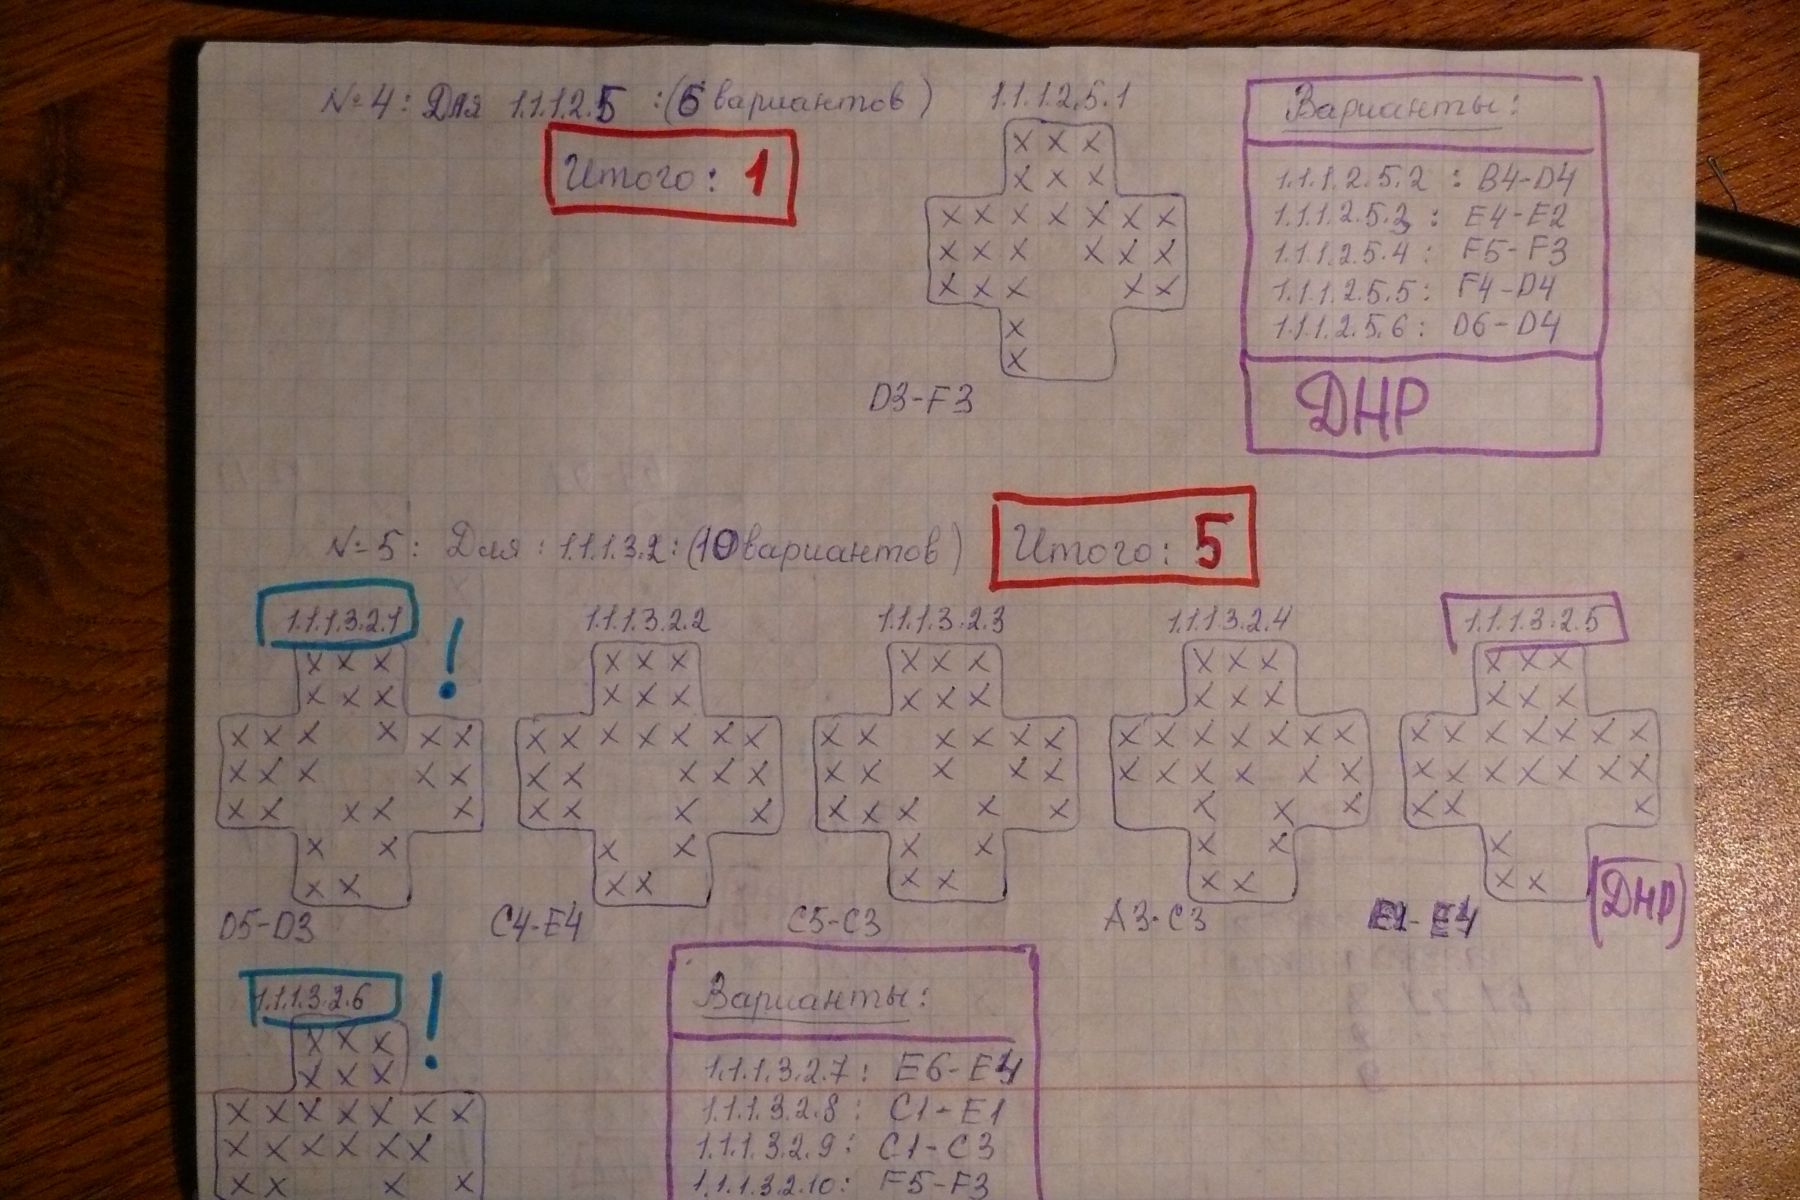 №4: Для 1.1.1.2.5 : (6 вариантов)
Итого: 1
1.1.1.2.5.1
X X X
X X X
X X X X X X X
X X X X X X
X X X X X
X
X
D3-F3
Варианты:
1.1.1.2.5.2 : B4-D4
1.1.1.2.5.3 : E4-E2
1.1.1.2.5.4 : F5-F3
1.1.1.2.5.5 : F4-D4
1.1.1.2.5.6 : D6-D4
ДНР
№5: Для: 1.1.1.3.2: (10 вариантов)
Итого: 5
1.1.1.3.2.1
!
X X X
X X X
X X X X X X
X X X X X
X X X X X
X X
X X
D5-D3
1.1.1.3.2.2
X X X
X X X
X X X X X X X
X X X X X
X X X X
X X
X X
C4-E4
1.1.1.3.2.3
X X X
X X X
X X X X X X
X X X X X
X X X X X
X X
X X
C5-C3
1.1.1.3.2.4
X X X
X X X
X X X X X X X
X X X X X X
X X X
X X
X X
A3-C3
1.1.1.3.2.5
X X X
X X X
X X X X X X X
X X X X X X X
X X X
X
X X
(ДНР)
1.1.1.3.2.6
!
X X X
X X X
X X X X X X X
X X X X X X
X X X X
Варианты:
1.1.1.3.2.7: E6-E4
1.1.1.3.2.8: C1-E1
1.1.1.3.2.9: C1-C3
1.1.1.3.2.10: F5-F3